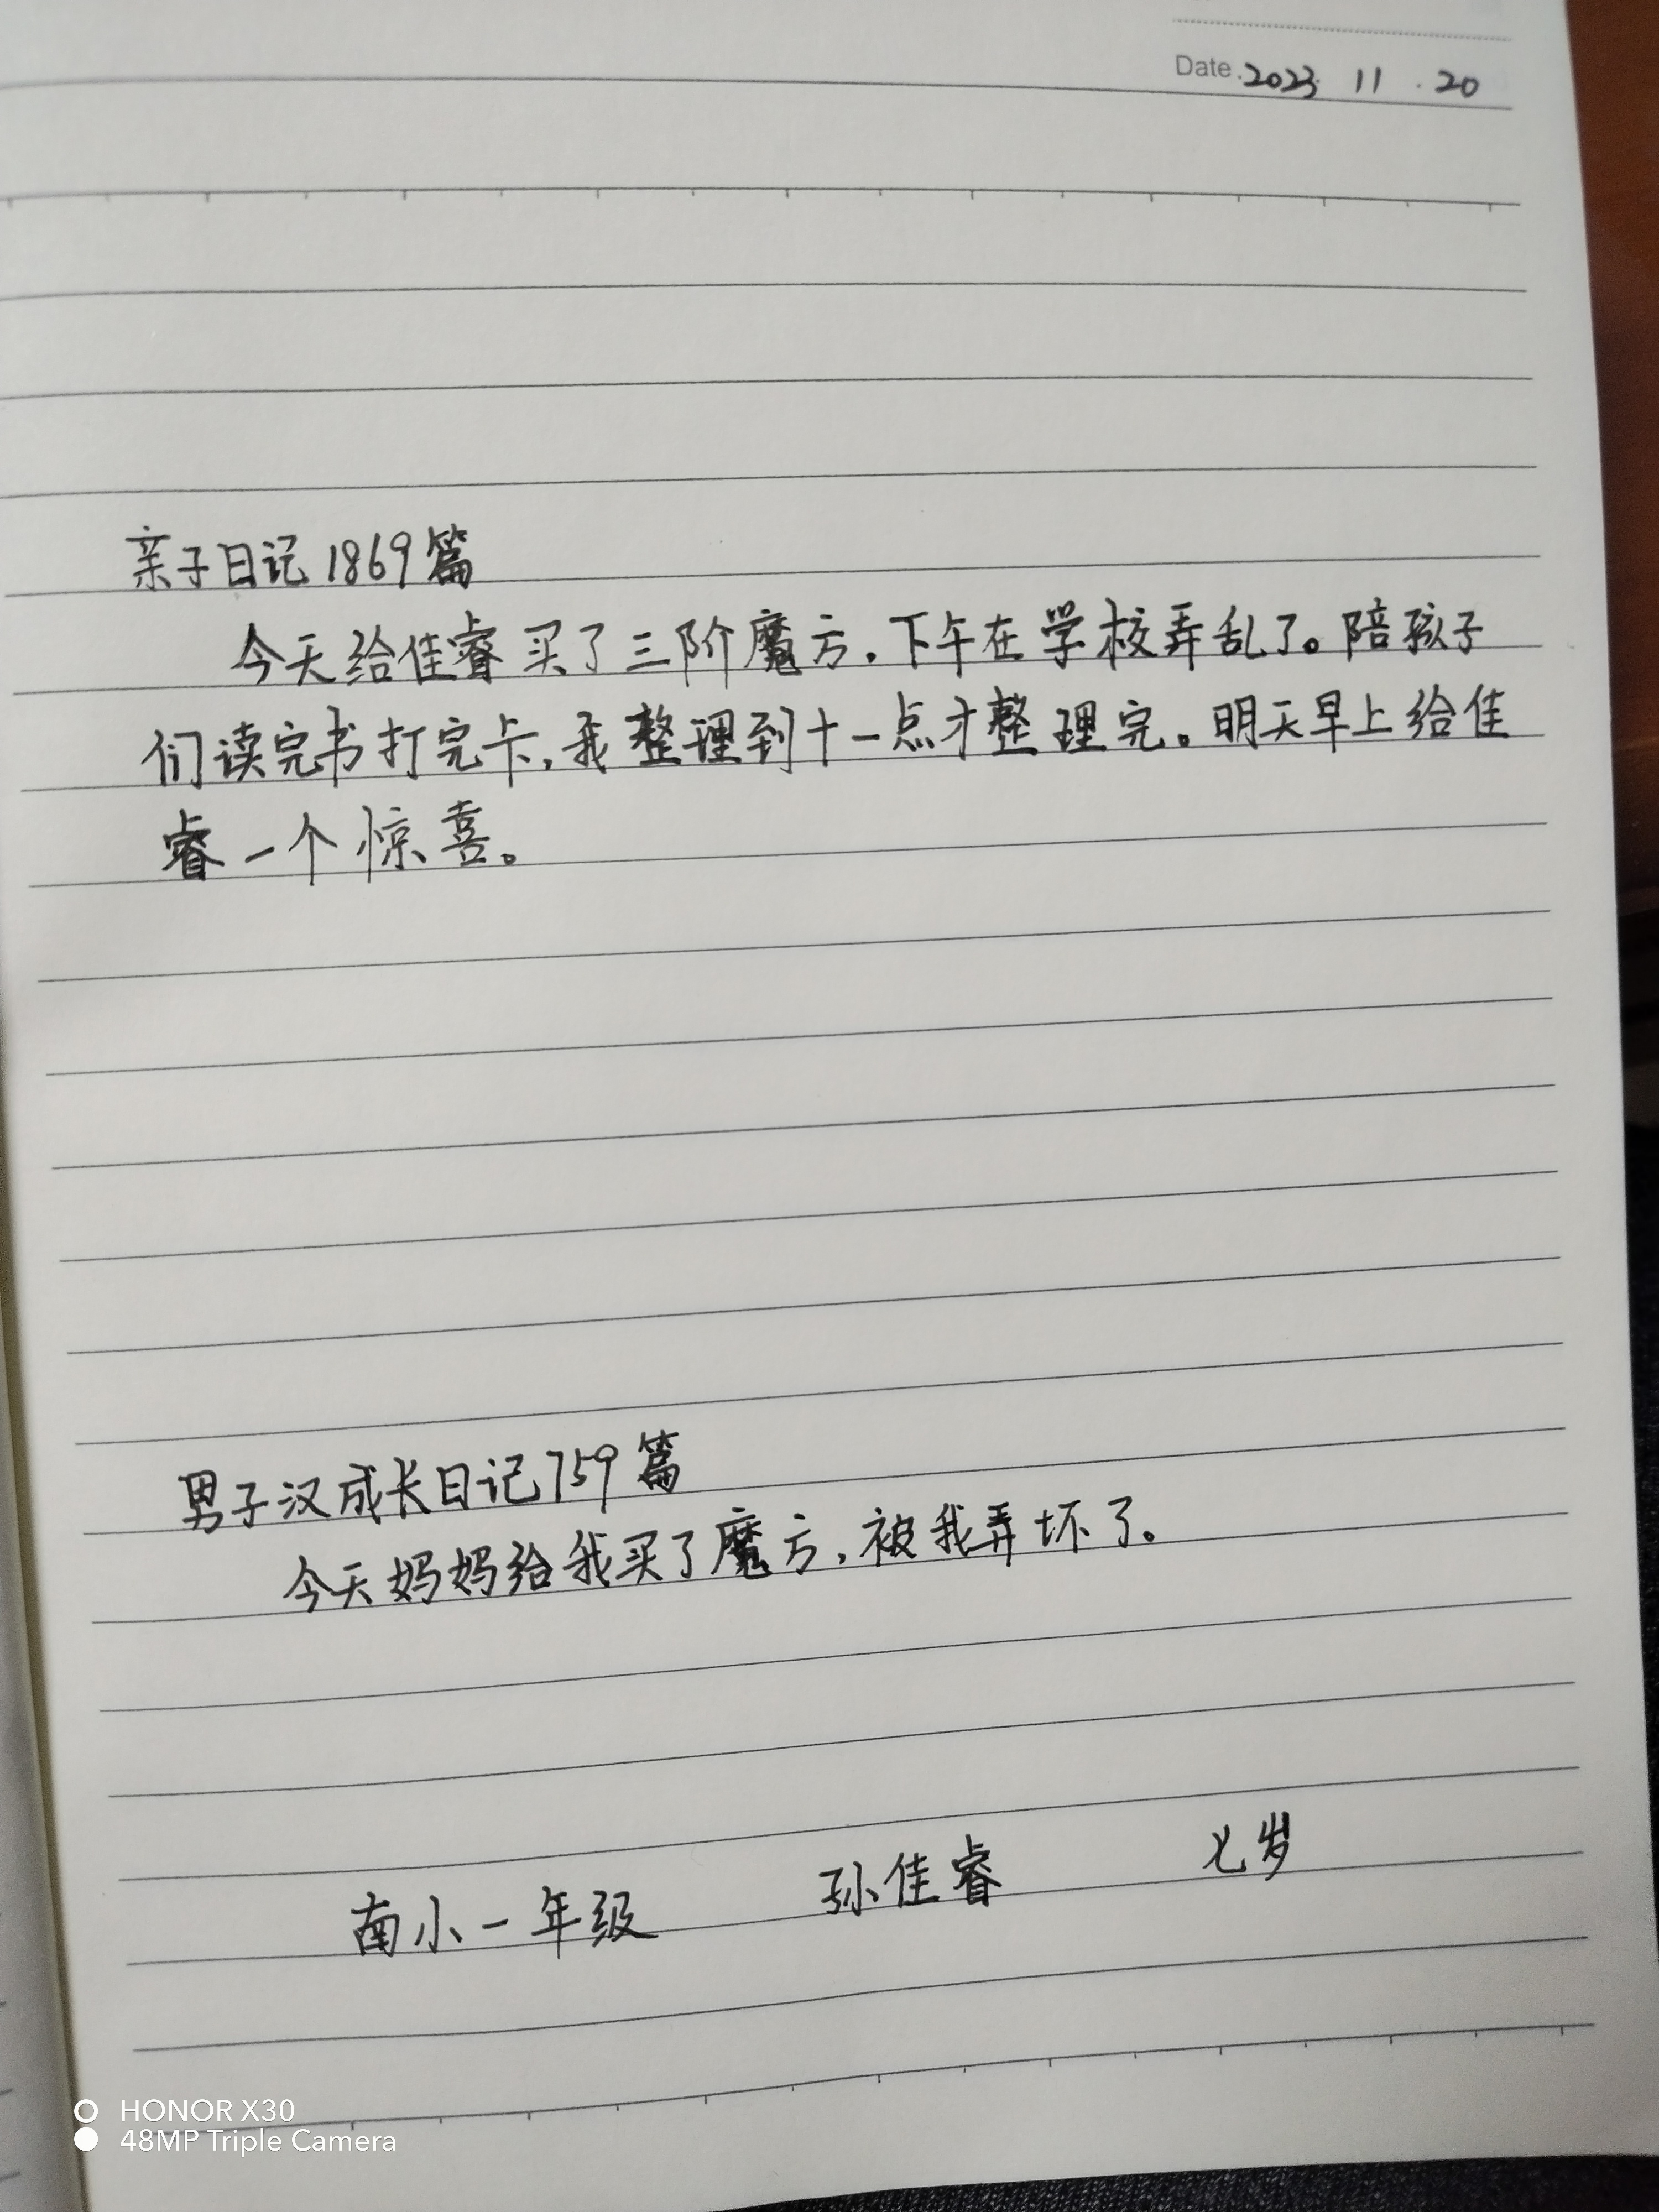 Date. 2023 11 . 20
亲子日记1869篇
今天给佳睿买了三阶魔方，下午在学校弄乱了。陪孩子
们读完书打完卡，我整理到十一点才整理完。明天早上给佳
睿一个惊喜。
男子汉成长日记759篇
今天妈妈给我买了魔方，被我弄坏了。
南小一年级 孙佳睿 七岁
HONOR X30
48MP Triple Camera